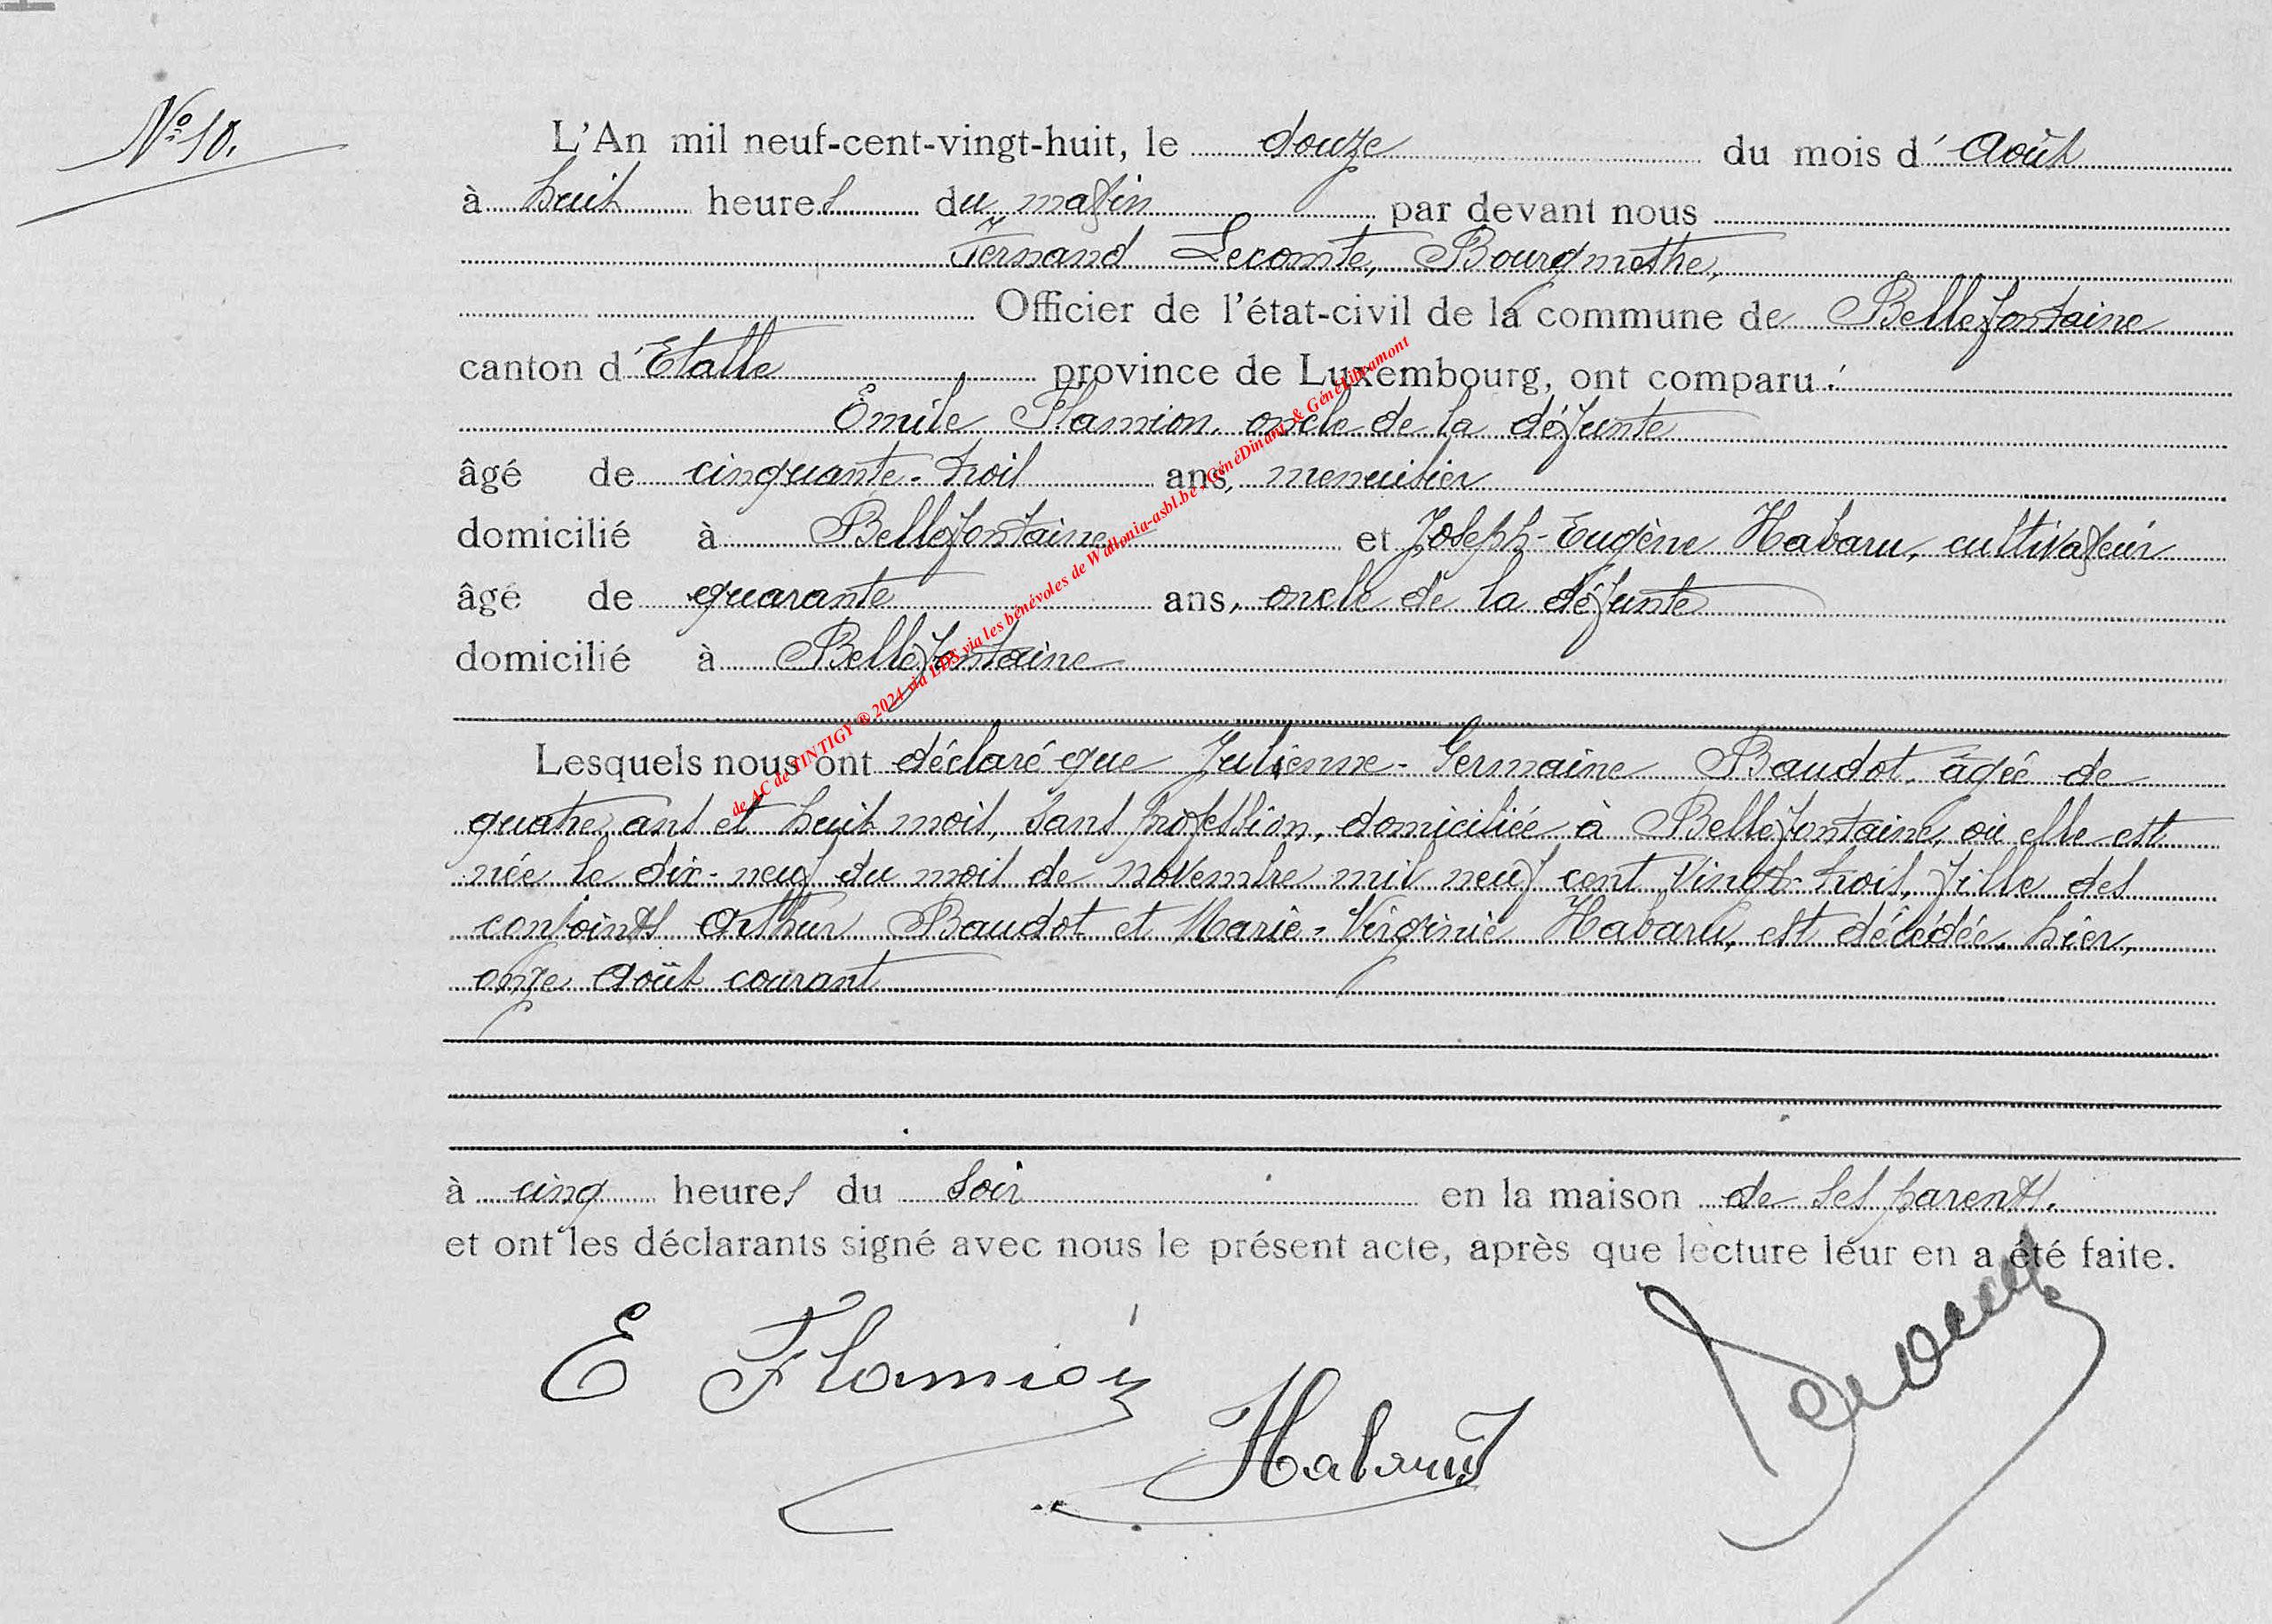 N° 10.
L'An mil neuf-cent-vingt-huit, le douze du mois d'Août
à huit heures du matin par devant nous
Fernand Lecomte, Bourgmestre,
Officier de l'état-civil de la commune de Bellefontaine
canton d'Etalle province de Luxembourg, ont comparu :
Emile Flamion, oncle de la défunte
âgé de cinquante-trois ans, menuisier
domicilié à Bellefontaine et Joseph-Eugène Habaru, cultivateur
âgé de quarante ans, oncle de la défunte
domicilié à Bellefontaine
Lesquels nous ont déclaré que Julienne-Germaine Baudot, âgée de
quatre ans et huit mois, sans profession, domiciliée à Bellefontaine, où elle est
née le dix-neuf du mois de novembre mil neuf cent vingt-trois, fille des
conjoints Arthur Baudot et Marie-Virginie Habaru, est décédée, hier,
onze Août courant
à cinq heures du soir en la maison de ses parents.
et ont les déclarants signé avec nous le présent acte, après que lecture leur en a été faite.
E Flamion
Habaru J
de AC de TINTIGY ® 2024 via LDS via les bénévoles de Wallonia-asbl.be - GénéDinant & GénéLibramont